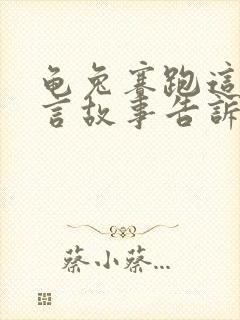 龟兔赛跑這
言故事告訴
蔡小蔡...